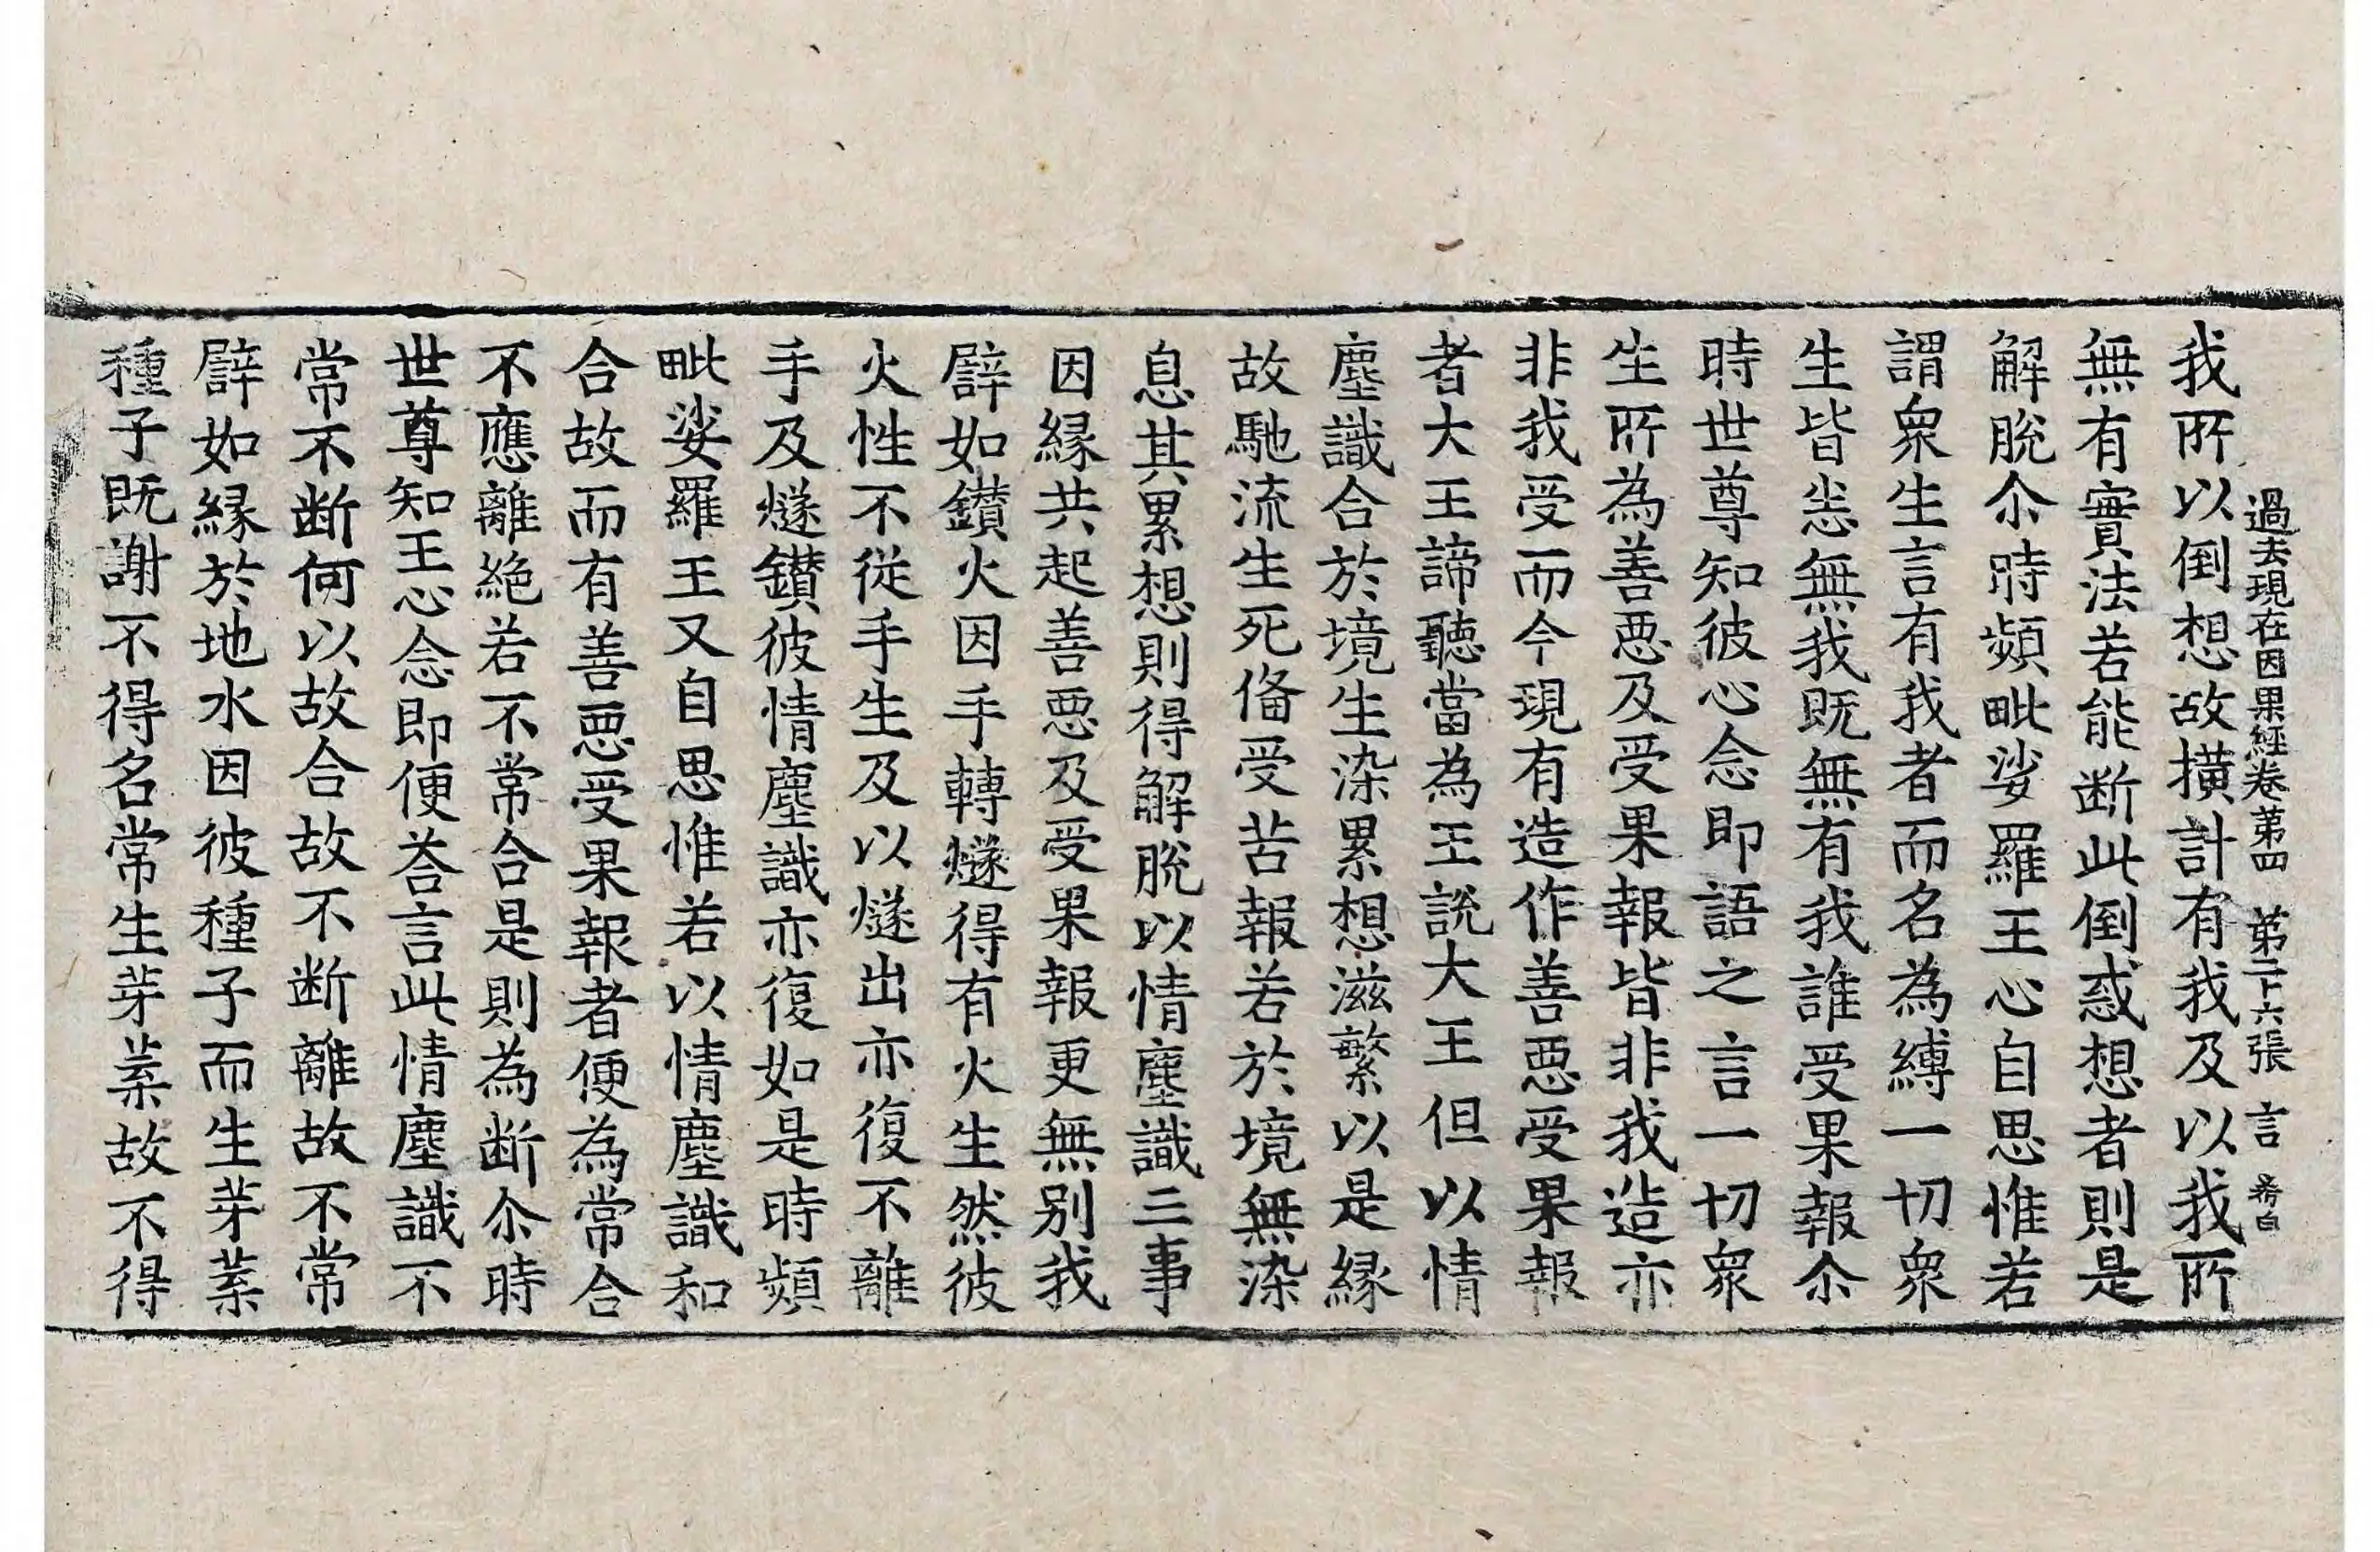 過去現在因果經卷第四 第二十六張 言 希白
我所以倒想故撗計有我及以我所
無有實法若能断此倒惑想者則是
解脫尒時頻毗娑羅王心自思惟若
謂衆生言有我者而名為縛一切衆
生皆悉無我既無有我誰受果報尒
時世尊知彼心念即語之言一切衆
生所為善惡及受果報皆非我造亦
非我受而今現有造作善惡受果報
者大王諦聽當為王說大王但以情
塵識合於境生染累想滋繁以是縁
故馳流生死俻受苦報若於境無染
息其累想則得解脫以情塵識三事
因縁共起善惡及受果報更無别我
譬如鑚火因手轉燧得有火生然彼
火性不從手生及以燧出亦復不離
手及燧鑚彼情塵識亦復如是時頻
毗娑羅王又自思惟若以情塵識和
合故而有善惡受果報者便為常合
不應離絶若不常合是則為断尒時
世尊知王心念即便荅言此情塵識不
常不断何以故合故不断離故不常
譬如縁於地水因彼種子而生芽葉
種子既謝不得名常生芽葉故不得